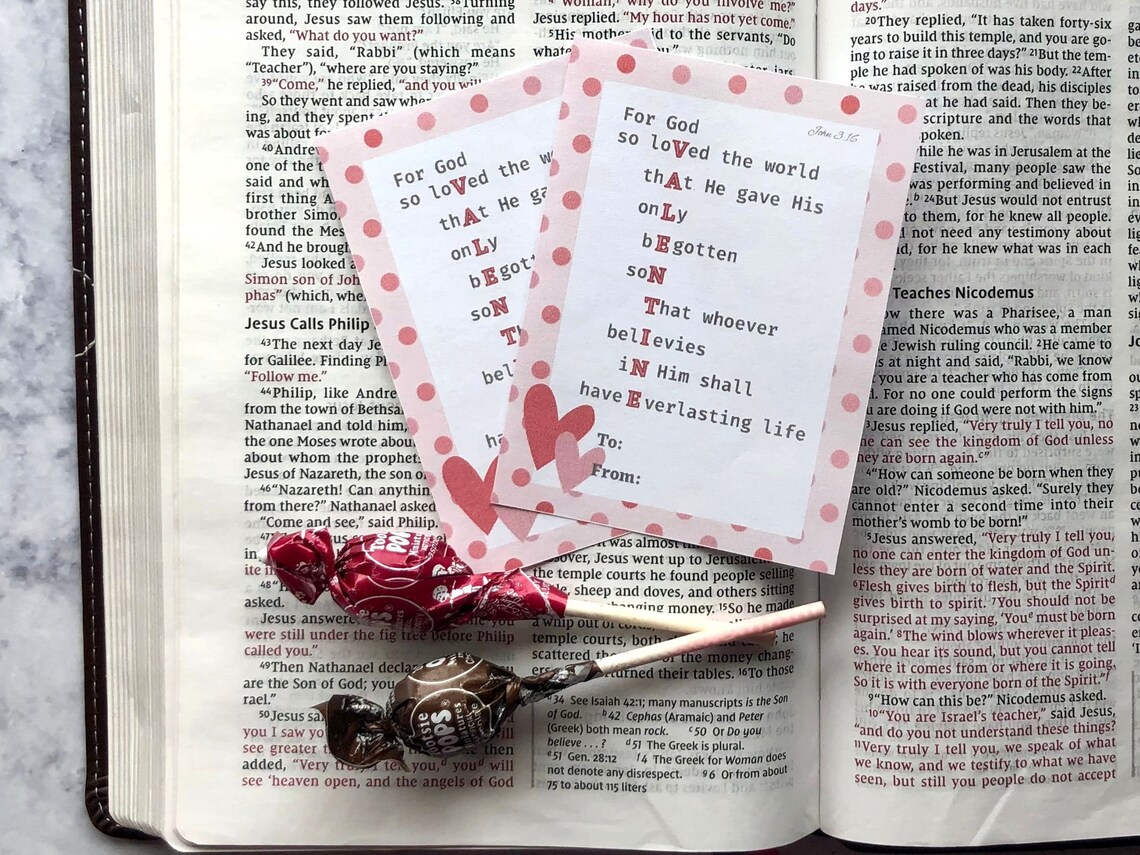 say this, they followed Jesus. 38Turning
around, Jesus saw them following and
asked, "What do you want?"
They said, "Rabbi" (which means
"Teacher"), "where are you staying?"
39"Come," he replied, "and you will
So they went and saw where
ing, and they spent
was about
40Andrew
one of the t
said and wh
first thing A
brother Simo
found the Mess
42And he brough
Jesus looked a
Simon son of Joh
phas" (which, whe
Jesus Calls Philip
43The next day Je
for Galilee. Finding Ph
"Follow me."
44Philip, like Andre
from the town of Bethsa
Nathanael and told him,
the one Moses wrote abou
about whom the prophet
Jesus of Nazareth, the son o
46"Nazareth! Can anythin
from there?" Nathanael asked
"Come and see," said Philip.
47
in
ite
48"H
asked.
Jesus answere
were still under the fig tree before Philip
called you."
49Then Nathanael decla
are the Son of God; you
rael."
50Jesus sai
you I saw
see greater t then
added, "Very truly I tell you,d youd will
see 'heaven open, and the angels of God
4"Woman, why do you involve me?"
Jesus replied. "My hour has not yet come."
5His mother said to the servants, "Do
whate you."
jars
For God
so loVed the w
thAt He ga
onLy
bEgot
soN
Th
bel
ha
For God John 3:16
so loVed the world
thAt He gave His
onLy
bEgotten
soN
That whoever
belIevies
iNHim shall
have Everlasting life
To:
From:
it was almost
sover, Jesus went up to Jerusalem
the temple courts he found people selling
le, sheep and doves, and others sitting
hanging money. 15So he made
a whip out of cords,
temple courts, both ; he
scattered the of the money chang-
ers overturned their tables. 16To those
a34 See Isaiah 42:1; many manuscripts is the Son
of God. b42 Cephas (Aramaic) and Peter
(Greek) both mean rock. c50 Or Do you
believe . . . ? d51 The Greek is plural.
e51 Gen. 28:12 f4 The Greek for Woman does
not denote any disrespect. g6 Or from about
75 to about 115 liters
Tootsie
POPS
Tootsie
POPS
days."
20They replied, "It has taken forty-six
years to build this temple, and you are go-
ing to raise it in three days?" 21But the tem-
ple he had spoken of was his body. 22After
he was raised from the dead, his disciples
at he had said. Then they be-
scripture and the words that
poken.
while he was in Jerusalem at the
Festival, many people saw the
was performing and believed in
.b 24But Jesus would not entrust
to them, for he knew all people.
not need any testimony about
d, for he knew what was in each
Teaches Nicodemus
ow there was a Pharisee, a man
amed Nicodemus who was a member
e Jewish ruling council. 2He came to
s at night and said, "Rabbi, we know
you are a teacher who has come from
d. For no one could perform the signs
u are doing if God were not with him."
3Jesus replied, "Very truly I tell you, no
ne can see the kingdom of God unless
hey are born again.c"
4"How can someone be born when they
are old?" Nicodemus asked. "Surely they
cannot enter a second time into their
mother's womb to be born!"
5Jesus answered, "Very truly I tell you,
no one can enter the kingdom of God un-
less they are born of water and the Spirit.
6Flesh gives birth to flesh, but the Spiritd
gives birth to spirit. 7You should not be
surprised at my saying, 'Youe must be born
again.' 8The wind blows wherever it pleas-
es. You hear its sound, but you cannot tell
where it comes from or where it is going.
So it is with everyone born of the Spirit."f
9"How can this be?" Nicodemus asked.
10"You are Israel's teacher," said Jesus,
"and do you not understand these things?
11Very truly I tell you, we speak of what
we know, and we testify to what we have
seen, but still you people do not accept